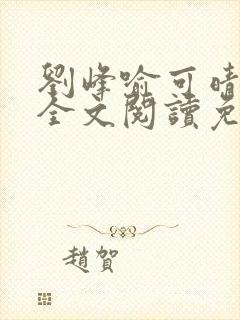 劉峰喻可晴
全文閱讀免
趙賀